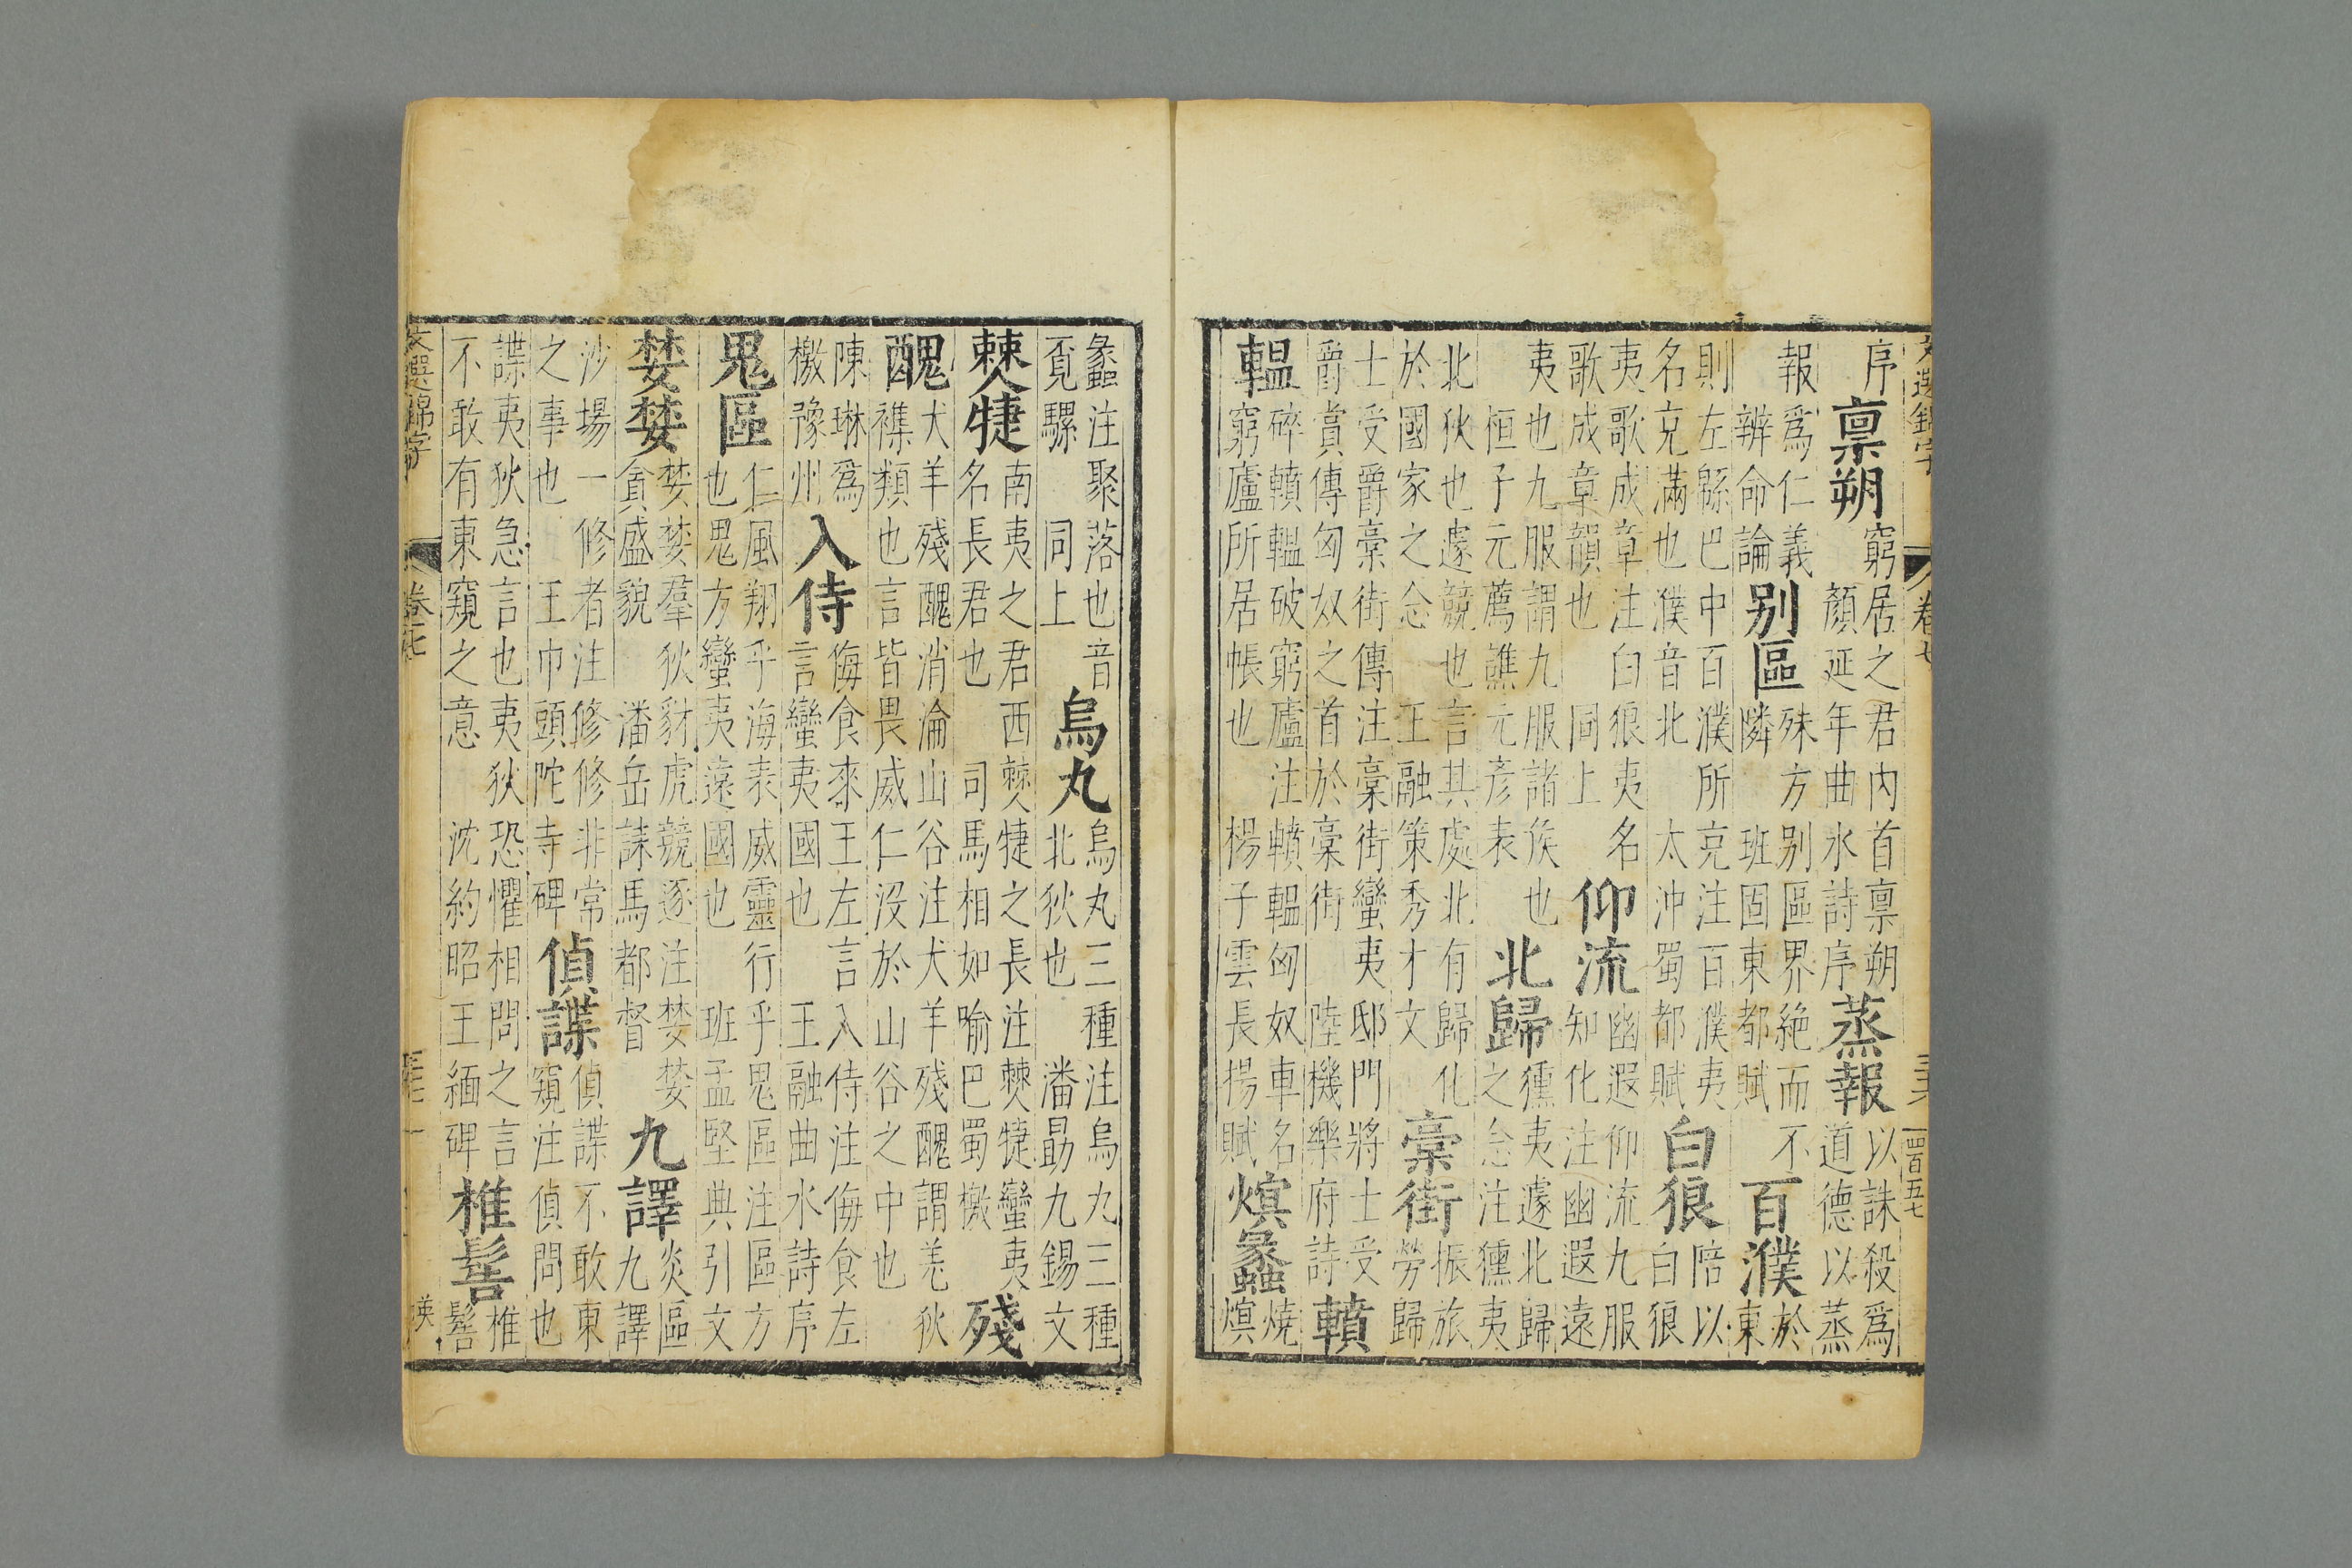 文選錦字 卷七 四百五七
序
稟朔
窮居之君内首稟朔
顏延年曲水詩序
蒸報
以誅殺爲
道德以蒸
報爲仁義
辨命論
别區
殊方别區界絶而不
隣 班固東都賦
百濮
於
東
則左緜巴中百濮所充注百濮夷
名充滿也濮音北 太沖蜀都賦
白狼
陪以
白狼
夷歌成章注白狼夷名
歌成章韻也 同上
仰流
幽遐仰流九服
知化注幽遐遠
夷也九服謂九服諸侯也
桓子元薦譙元彥表
北歸
獯夷遽北歸
之念注獯夷
北狄也遽競也言其處北有歸化
於國家之念 王融策秀才文
稾街
振旅
勞歸
士受爵稾街傳注稾街蠻夷邸門將士受
爵賞傳匈奴之首於稾街 陸機樂府詩
轒
轀
碎轒轀破窮廬注轒轀匈奴車名
窮廬所居帳也 楊子雲長揚賦
熐蠡
燒
熐
蠡注聚落也音
覓騾 同上
烏丸
烏丸三種注烏丸三種
北狄也 潘勗九錫文
僰㨗
南夷之君西僰㨗之長注僰㨗蠻夷
名長君也 司馬相如喻巴蜀檄
殘
醜
犬羊殘醜消淪山谷注犬羊殘醜謂羌狄
襍類也言皆畏威仁没於山谷之中也
陳琳爲
檄豫州
入侍
侮食來王左言入侍注侮食左
言蠻夷國也 王融曲水詩序
鬼區
仁風翔乎海表威靈行乎鬼區注區方
也鬼方蠻夷遠國也 班孟堅典引文
婪婪
婪婪羣狄豺虎競逐注婪婪
貪盛貌 潘岳誄馬都督
九譯
炎區
九譯
沙場一 修者注修修非常
之事也 王巾頭陀寺碑
偵諜
偵諜不敢東
窺注偵問也
諜夷狄急言也夷狄恐懼相問之言
不敢有東窺之意 沈約昭王緬碑
椎髻
椎
髻
文選錦字 卷七